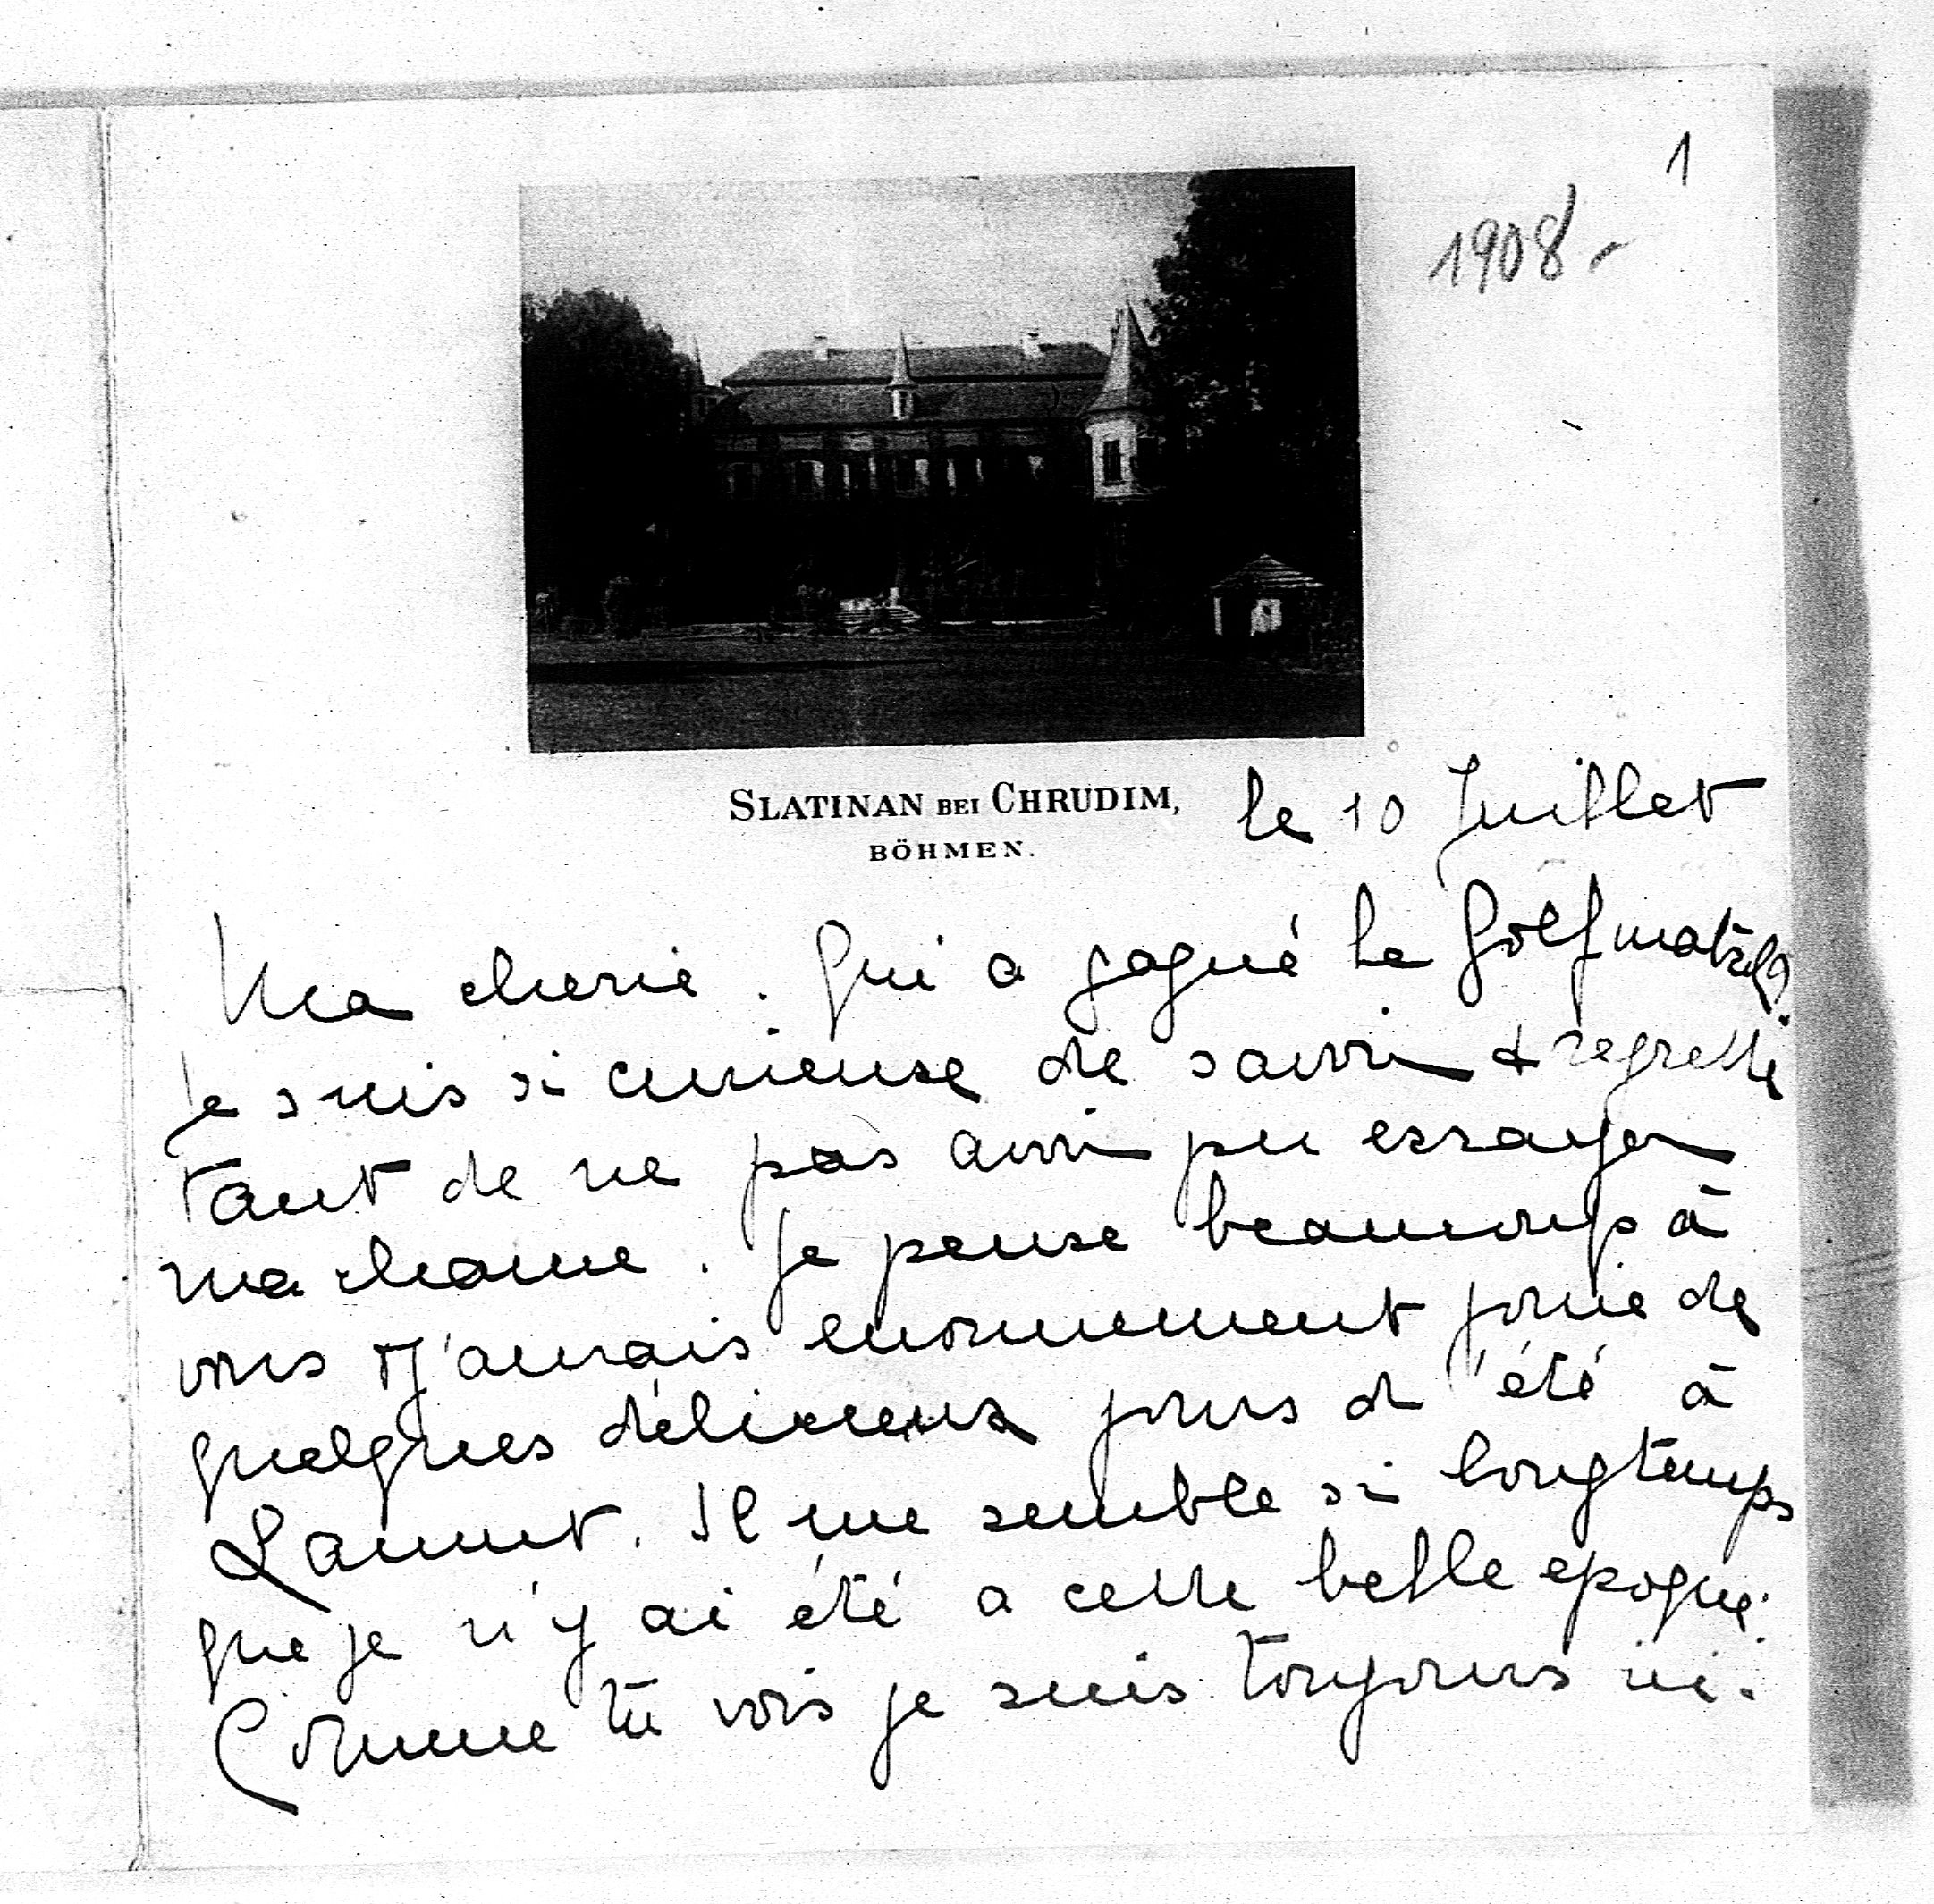 1
1908-
SLATINAN BEI CHRUDIM,
BÖHMEN.
le 10 Juillet
Ma cherie. Qui a gagné le Golfmatch?
Je suis si curieuse de savoir & regrette
tant de ne pas avoir pu essayer
ma chance. Je pense beaucoup à
vous & j'aurais enormement jouie de
quelques délicieux jours d'été à
Lanut. Il me semble si longtemps
que je n'y ai été a cette belle epoque.
Comme tu vois je suis toujours ici.